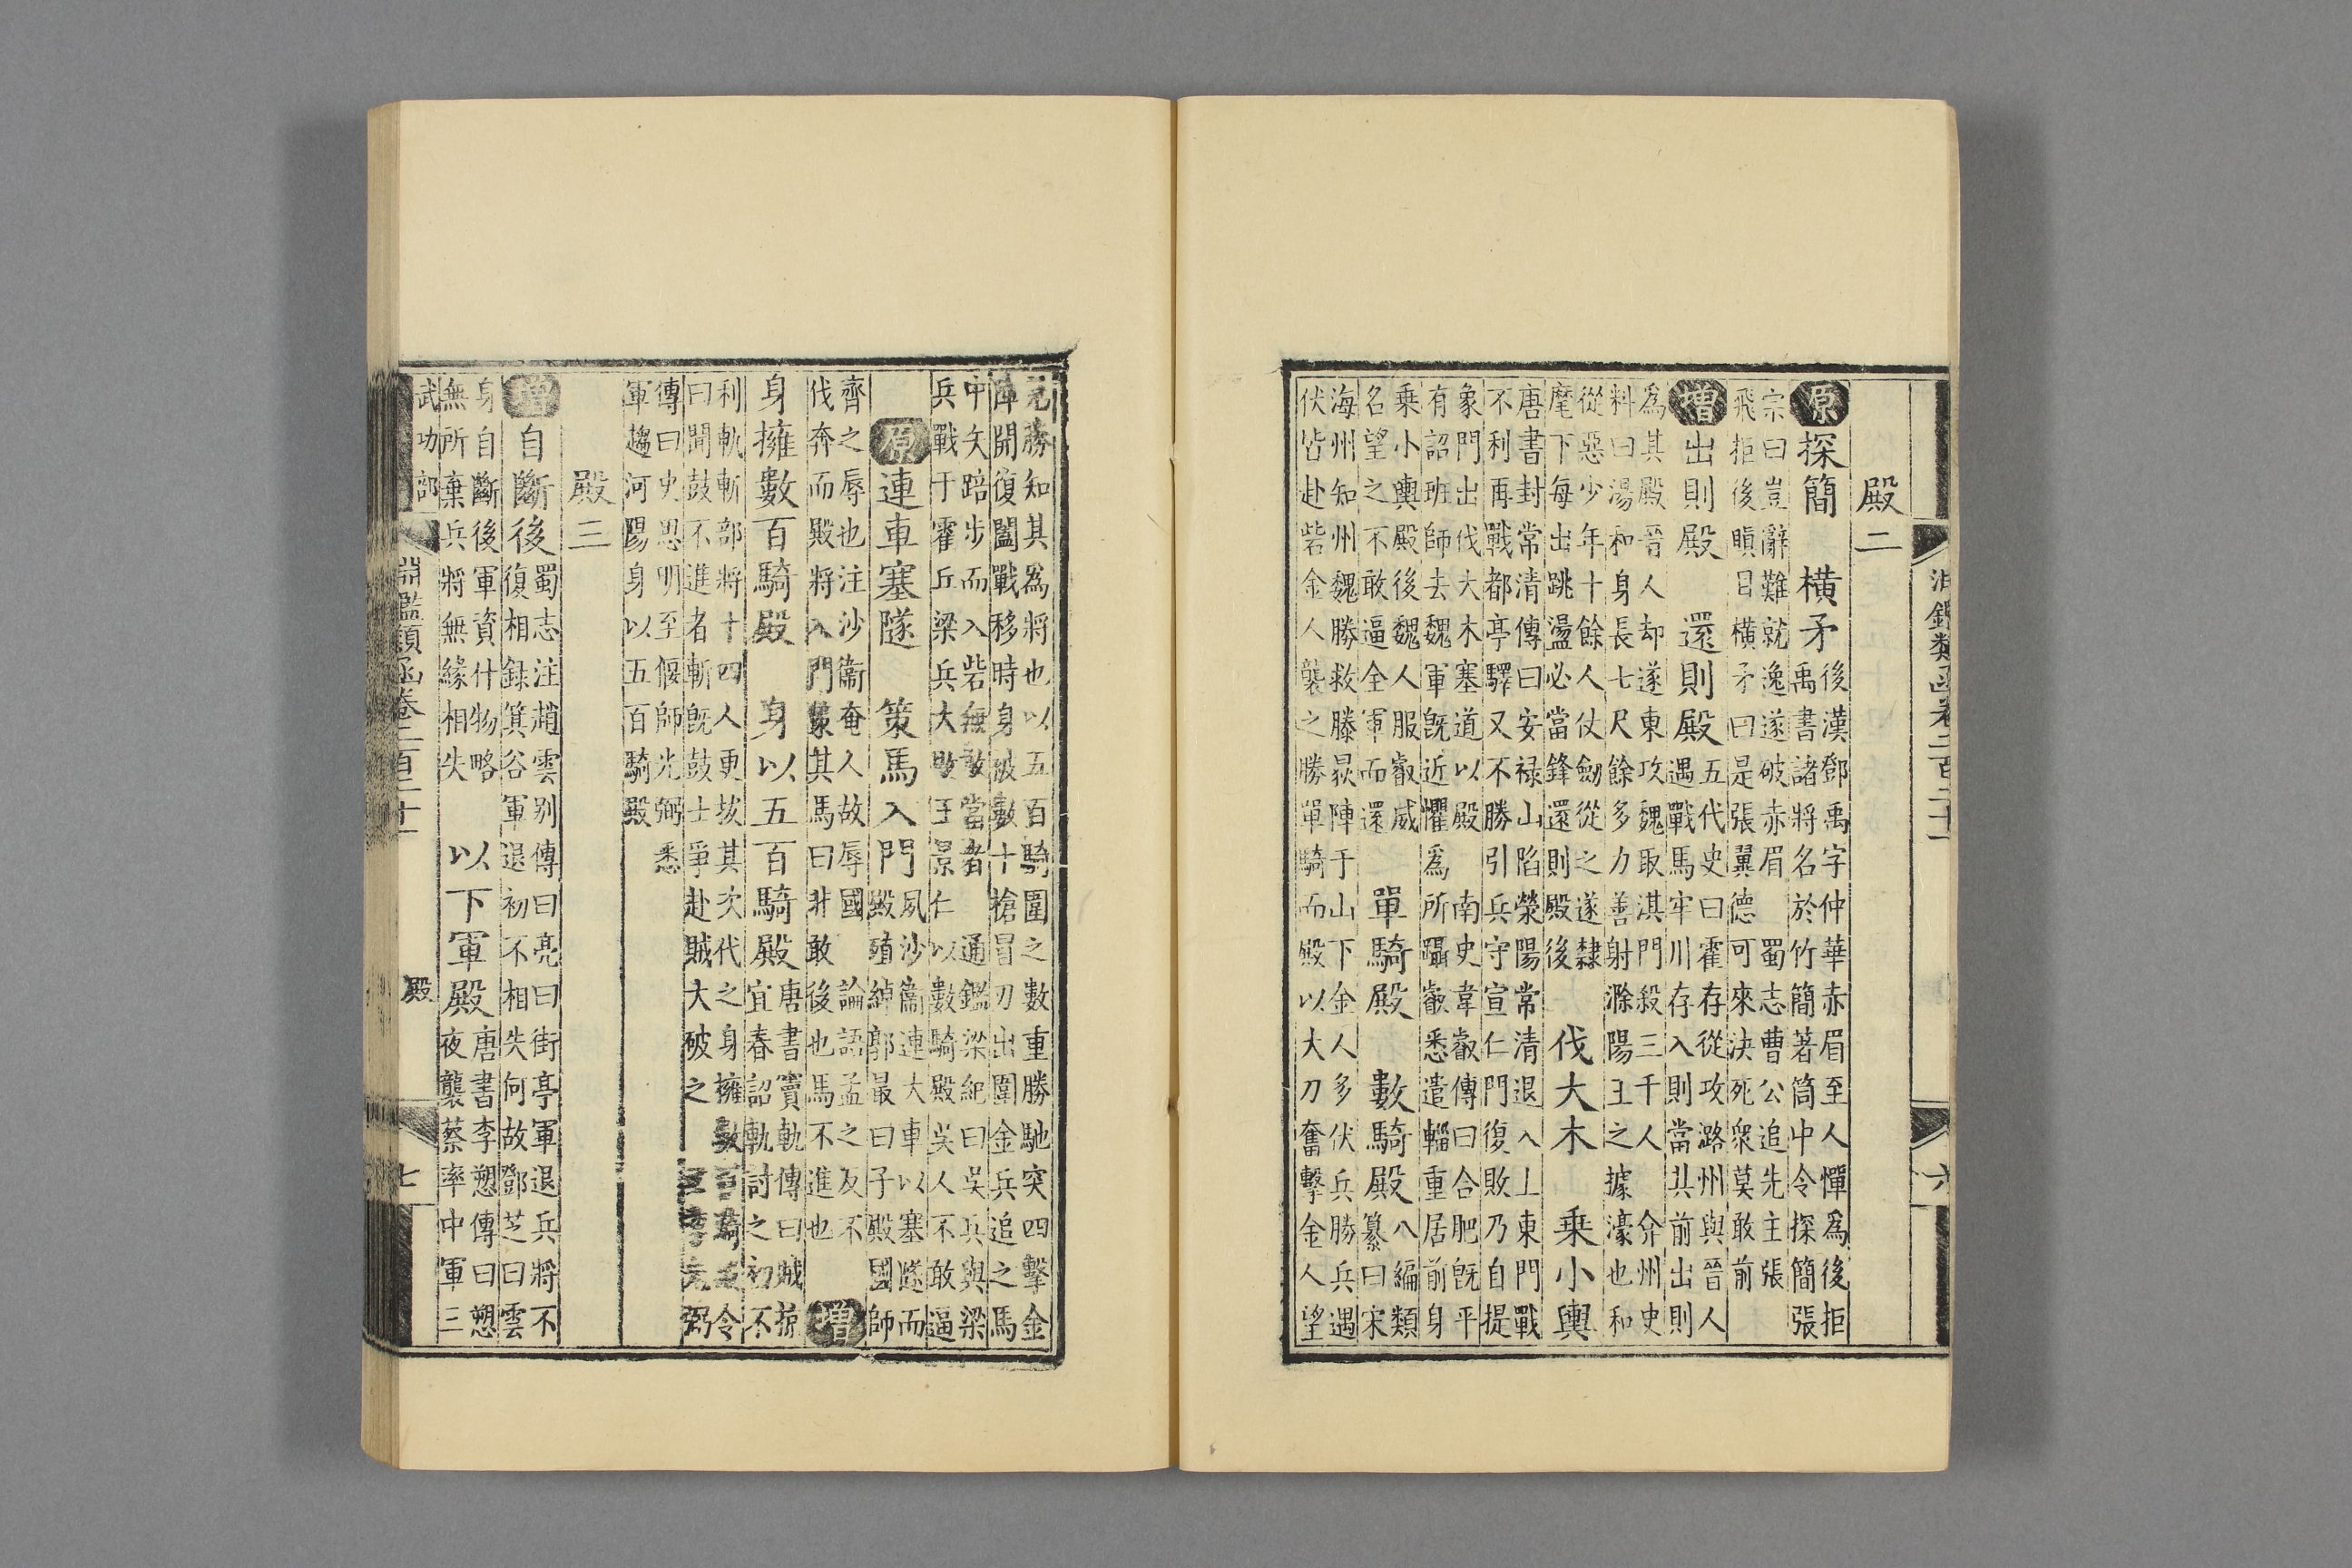 淵鑑類函卷二百二十一 六
殿二
原 探簡 橫矛 後漢鄧禹字仲華赤眉至人憚爲後拒
禹書諸將名於竹簡著筒中令探簡張
宗曰豈辭難就逸遂破赤眉 蜀志曹公追先主張
飛拒後瞋目橫矛曰是張翼德可來決死衆莫敢前
增 出則殿 還則殿 五代史曰霍存從攻潞州與晉人
遇戰馬牢川存入則當其前出則
爲其殿晉人却遂東攻魏取淇門殺三千人 介州史
料曰湯和身長七尺餘多力善射滁陽王之據濠也和
從惡少年十餘人仗劒從之遂隸
麾下每出跳盪必當鋒還則殿後 伐大木 乗小輿
唐書封常清傳曰安禄山陷滎陽常清退入上東門戰
不利再戰都亭驛又不勝引兵守宣仁門復敗乃自提
象門出伐大木塞道以殿 南史韋叡傳曰合肥旣平
有詔班師去魏軍旣近懼爲所躡叡悉遣輜重居前身
乗小輿殿後魏人服叡威
名望之不敢逼全軍而還 單騎殿 數騎殿 八編類
纂曰宋
海州知州魏勝救滕荻陣于山下金人多伏兵勝兵遇
伏皆赴砦金人襲之勝單騎而殿以大刀奮擊金人望
見勝知其爲將也以五百騎圍之數重勝馳突四擊金
陣開復闔戰移時身被數十槍冒刃出圍金兵追之馬
中矢踣步而入砦無敢當者 通鑑梁紀曰吳兵與梁
兵戰于霍丘梁兵大敗王景仁以數騎殿吳人不敢逼
原 連車塞隧 策馬入門 夙沙衞連大車以塞隧而
殿殖綽郭最曰子殿國師
齊之辱也注沙衞奄人故辱國 論語孟之反不
伐奔而殿將入門策其馬曰非敢後也馬不進也 增
身擁數百騎殿 身以五百騎殿 唐書竇軌傳曰賊掠
宜春詔軌討之初不
利軌斬部將十四人更拔其次代之身擁數百騎殿令
曰聞鼓不進者斬旣鼓士爭赴賊大破之 李光弼
傳曰史思明至偃師光弼悉
軍趨河陽身以五百騎殿
殿三
增 自斷後 蜀志注趙雲别傳曰亮曰街亭軍退兵將不
復相録箕谷軍退初不相失何故鄧芝曰雲
身自斷後軍資什物略
無所棄兵將無緣相失 以下軍殿 唐書李愬傳曰愬
夜襲蔡率中軍三
武功部 淵鑑類函卷二百二十一 殿 七